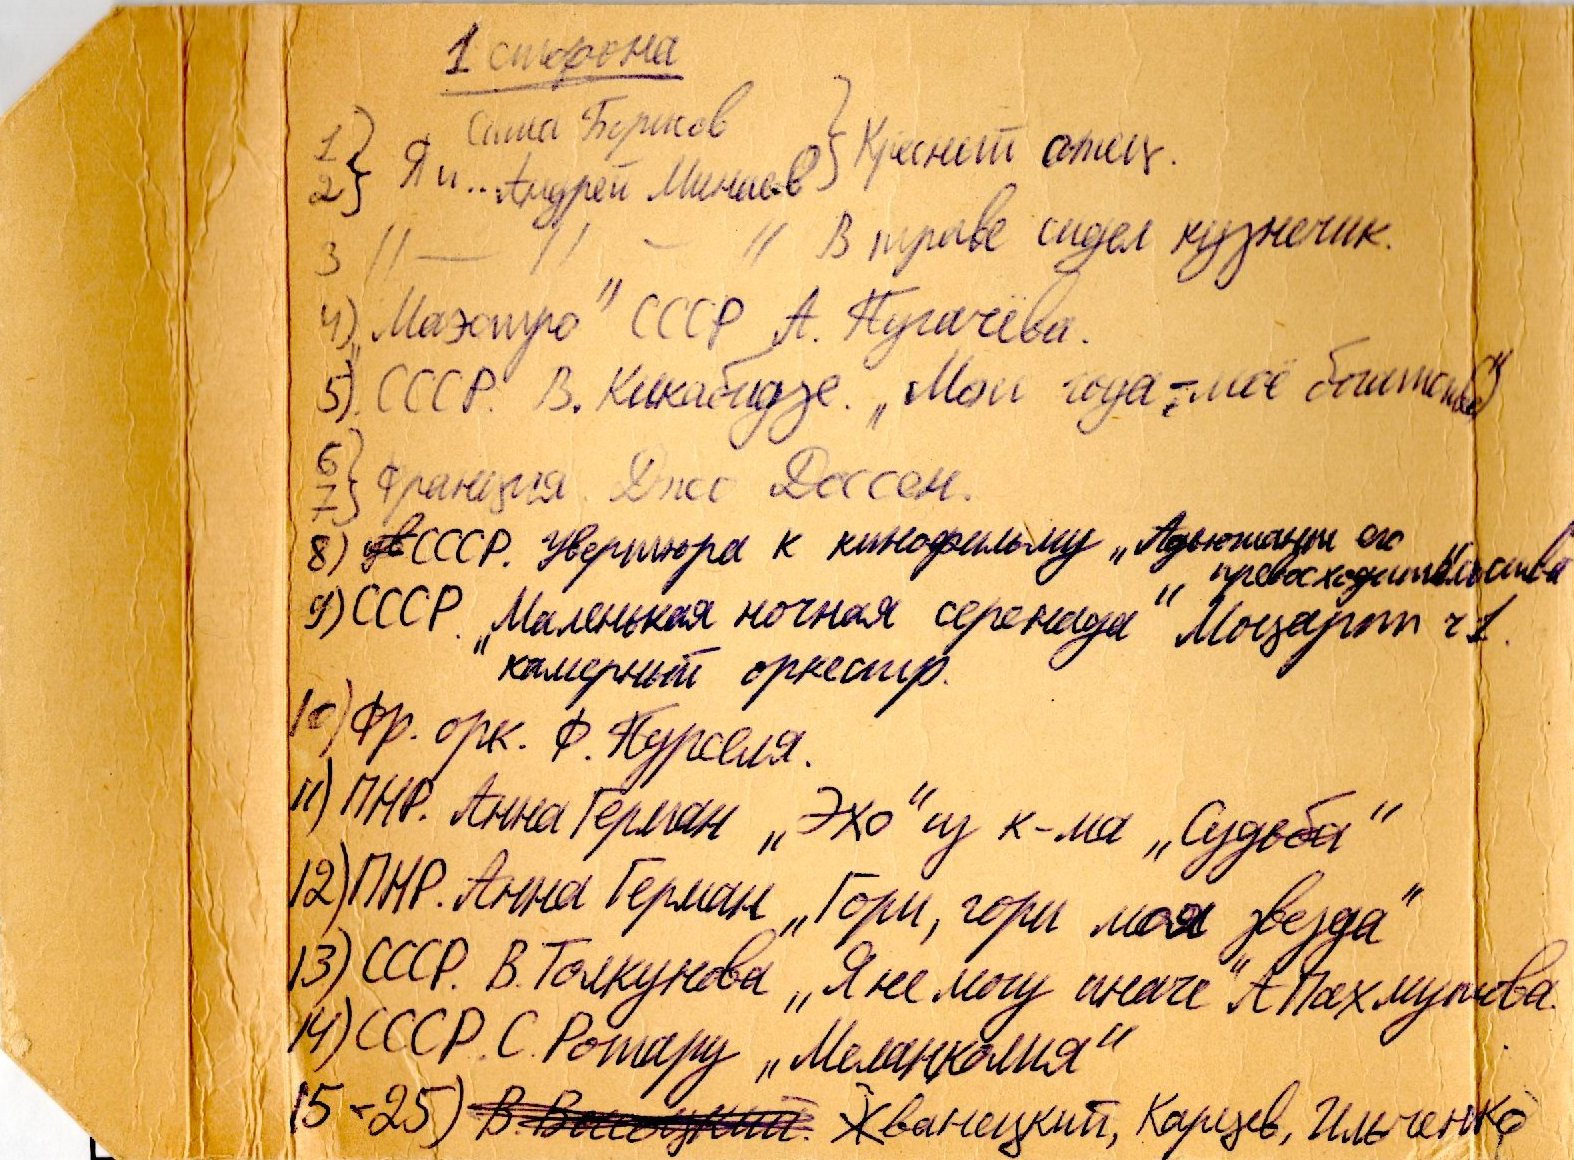 1 сторона
Саша Борисов
1 } 2 } Я и... Андрей Минаев } Крёстный отец.
3 〃 — 〃 — 〃 В траве сидел кузнечик.
4) „Маэстро" СССР А. Пугачёва.
5) СССР. В. Кикабидзе. „Мои года - моё богатство"
6 } 7 } Франция. Джо Дассен.
8) СССР. Увертюра к кинофильму „Адьютант его
превосходительства"
9) СССР. „Маленькая ночная серенада" Моцарт ч 1.
камерный оркестр.
10) Фр. орк. Ф. Пурселя.
11) ПНР. Анна Герман „Эхо" из к-ма „Судьба"
12) ПНР. Анна Герман „Гори, гори моя звезда"
13) СССР. В. Толкунова „Я не могу иначе" А Пахмутова.
14) СССР. С. Ротару „Меланколия"
15-25) В. Высоцкий. Жванецкий, Карцев, Ильченко